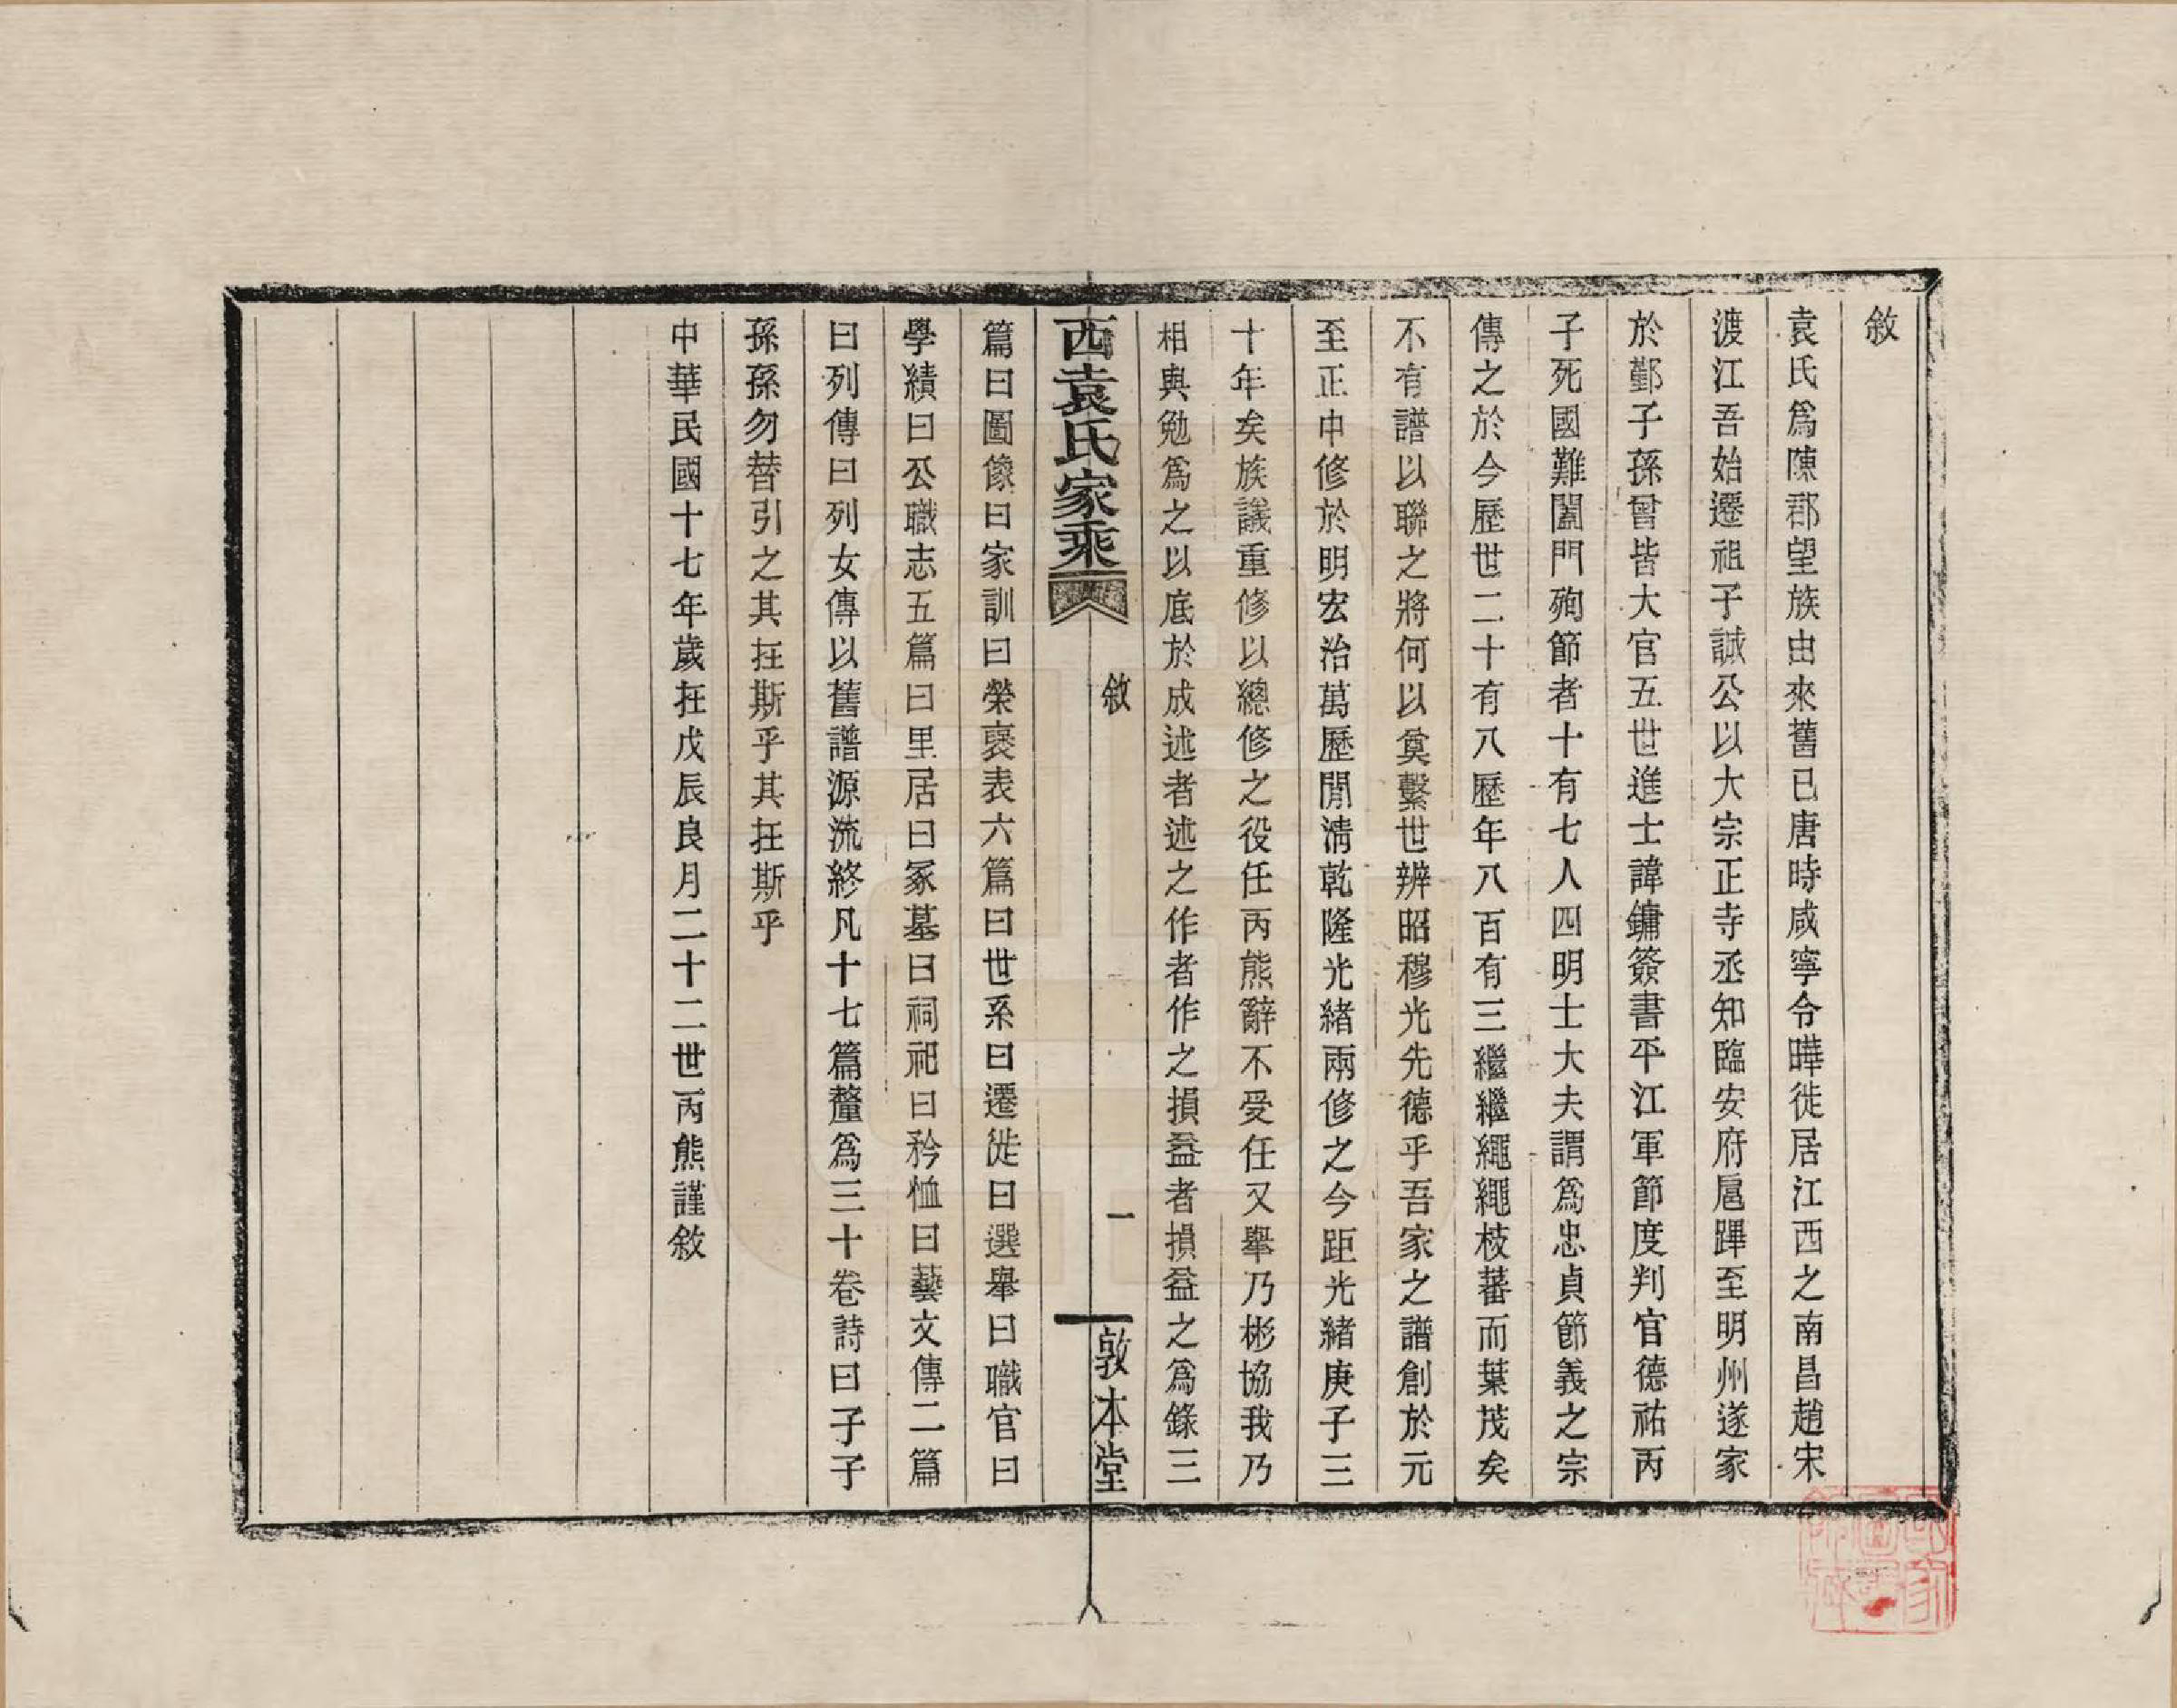 敘
袁氏爲陳郡望族由來舊已唐時咸寧令曄徙居江西之南昌趙宋
渡江吾始遷祖子誠公以大宗正寺丞知臨安府扈蹕至明州遂家
於鄞子孫曾皆大官五世進士諱鏞簽書平江軍節度判官德祐丙
子死國難闔門殉節者十有七人四明士大夫謂爲忠貞節義之宗
傳之於今歷世二十有八歷年八百有三繼繼繩繩枝蕃而葉茂矣
不有譜以聯之將何以奠繫世辨昭穆光先德乎吾家之譜創於元
至正中修於明宏治萬歷閒淸乾隆光緒兩修之今距光緒庚子三
十年矣族議重修以總修之役任丙熊辭不受任又舉乃彬協我乃
相與勉爲之以底於成述者述之作者作之損益者損益之爲錄三
西袁氏家乘
敘
一
敦本堂
篇曰圖像曰家訓曰榮襃表六篇曰世系曰遷徙曰選舉曰職官曰
學績曰公職志五篇曰里居曰冢墓曰祠祀曰矜恤曰藝文傳二篇
曰列傳曰列女傳以舊譜源流終凡十七篇釐爲三十卷詩曰子子
孫孫勿替引之其在斯乎其在斯乎
中華民國十七年歲在戊辰良月二十二世丙熊謹敘